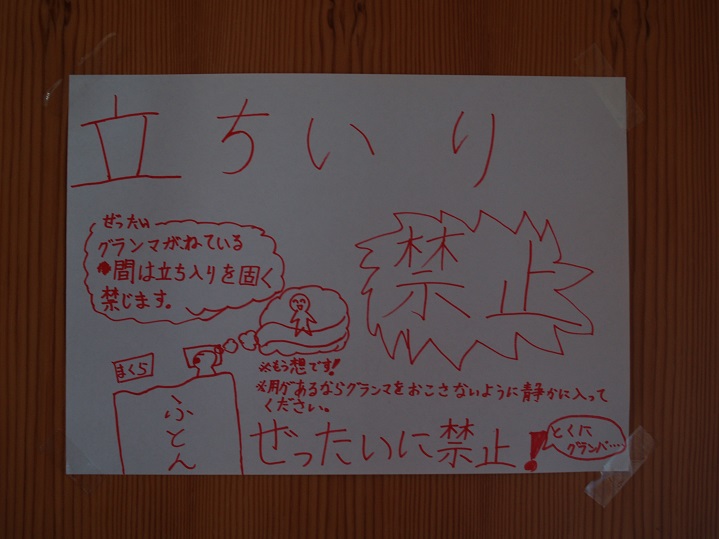 立ちいり
禁止
ぜったい
グランマがねている
間は立ち入りを固く
禁じます。
※もう想です!
※用があるならグランマをおこさないように静かに入って
ください。
まくら
ふとん
ぜったいに禁止!
とくに
グランパ……